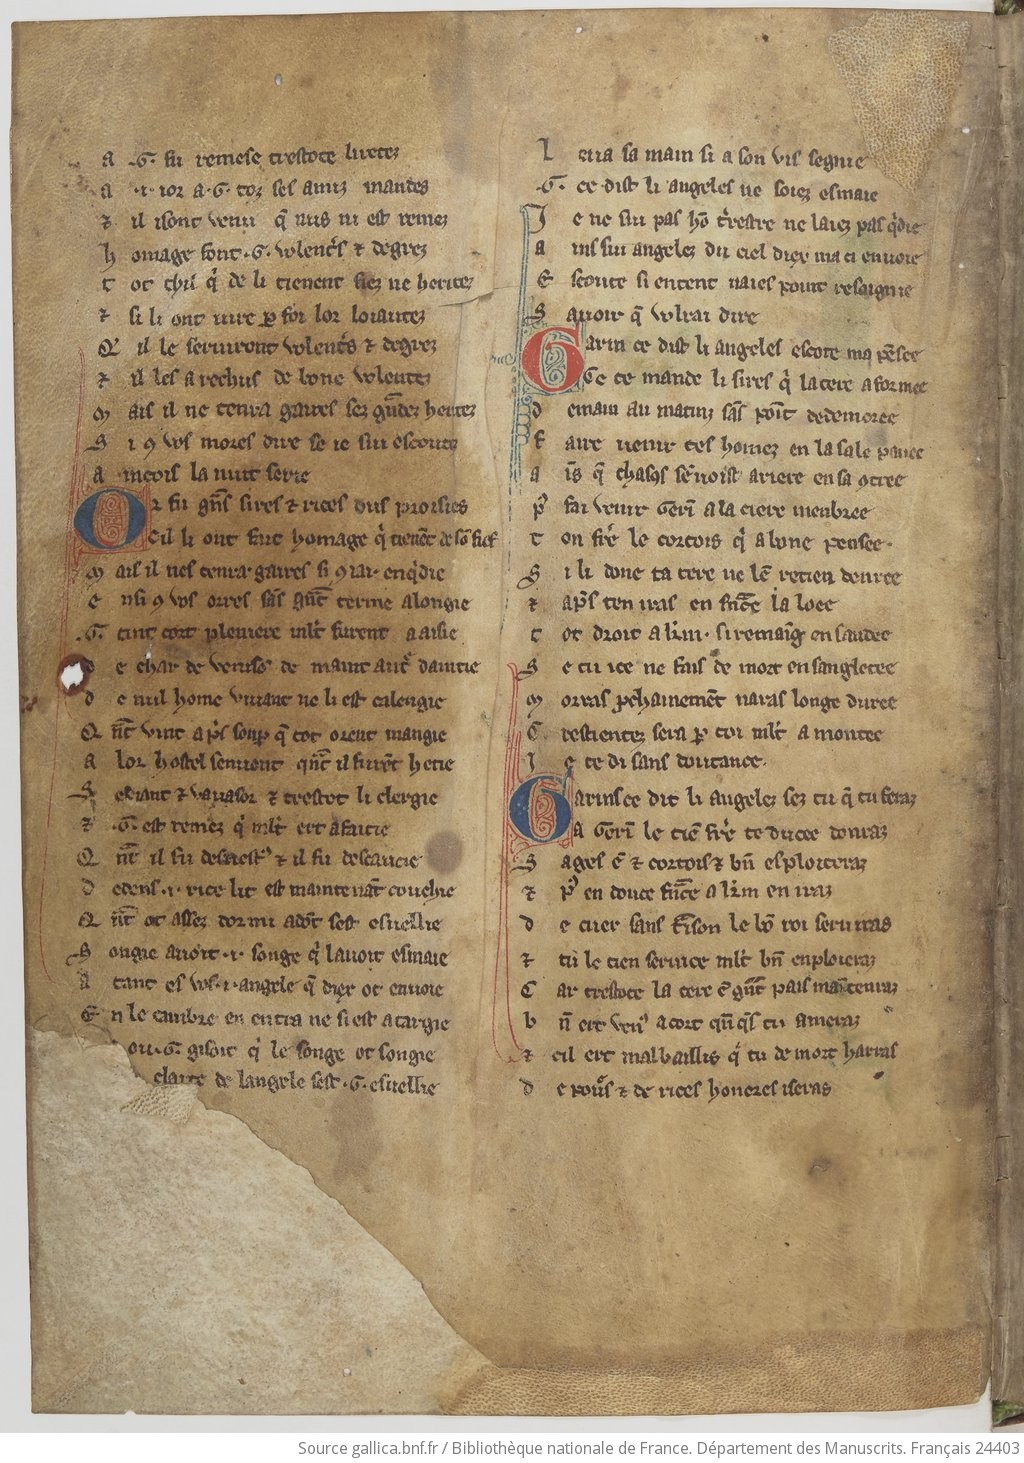 a .G. fu remese trestote liretez
a .i. ior a .G. toz ses amis mandes
⁊ il isont venu q̃ nus ni est remez
h omage font .G. volentˢ ⁊ degrez
t ot chil q̓ de li tienent fiez ne heritez
⁊ si li ont iure ꝑ foi lor loiautez
Q il le seruiront volentˢ ⁊ degrez
⁊ il les a rechus de bone volentez
m ais il ne tenra gaires sez gñdez heritez
S i ꝯ vos mores dire se ie sui escoutez
a incois la nuit serie
O r fu gñs sires ⁊ rices dus proisies
Cil li ont fait homage q̓ tienẽt de sõ fief
m ais il nes tenra gaires si ꝯ iai enq̓die
e nsi ꝯ vos orres sãs gñt terme alongie
.G. tint cort pleniere mlt̓ furent aaisie
d e char de venisõ de maint autˢ daintie
d e nul home viuant ne li est calengie
Q ñt vint apˢ soup̱ q̃ tot orent mangie
a lor hostel senuont qñt il furẽt hetie
S eriant ⁊ vauasor ⁊ trestot li clergie
⁊ .G. est remez q̓ mlt̓ ert afaitie
Q ñt il fu desuestˀ ⁊ il fu descaucie
d edens .i. rice lit est maintenãt couchie
Q ñt ot assez dormi adõt sest esuellie
S ongie auoit .i. songe q̓ lauoit esmaie
a tant es vos .i. angele q̃ diex ot enuoie
E n le cambre en entra ne si est atargie
ou .G. gisoit q̓ le songe ot songie
clarte de langele sest .G. esuellie
L eua sa main si a son vis segnie
.G. ce dist li angeles ne soiez esmaie
J e ne sui pas hõ tˢrestre ne laiez pas q̓die
a ins sui angelez du ciel diex ma ci enuoie
E scoute si entent naies point resoignie
S auoir q̃ volrai dire
G arin ce dist li angeles escote ma pẽsee
Ge te mande li sires q̓ la tere a formee
d emain au matin sãs poĩt de demoree
F aire uenir tes homez en la sale pauee
a ĩs q̃ chascˢ sẽ uoist ariere en sa ꝯtree
pˀ fai venir Gerĩ a la ciere menbree
t on frẽ le cortois q̓ a bone pensee.
S i li done ta tere ne lẽ retien denree
⁊ apˢ ten iras en frãce la loee
t ot droit a kˡm. si remaĩg en saudee
S e tu ice ne fais de mort ensangletee
m orras ꝓchainemẽt naras longe duree
C restientez sera ꝑ toi mlt̓ amontee
J e te di sans doutance.
G arins ce dit li angelez sez tu q̃ tu feraz
A Gerĩ le tiẽ frẽ te ducee donraz
S ages ẽ ⁊ cortois ⁊ bñ esploiteraz
⁊ pˀ en douce frãce a kˡm en iraz
d e cuer sans traïson le bõ roi seruiras
⁊ tu le tien seruice mlt̓ bñ enploieraz
C ar trestote la tere ẽ gñt pais maĩtenraz
b ñ ert venˀ a cort qñq̓s tu ameraz
⁊ cil ert malbaillis q̓ tu de mort harras
d e poũs ⁊ de rices honeres iseras
Source gallica.bnf.fr / Bibliothèque nationale de France. Département des Manuscrits. Français 24403